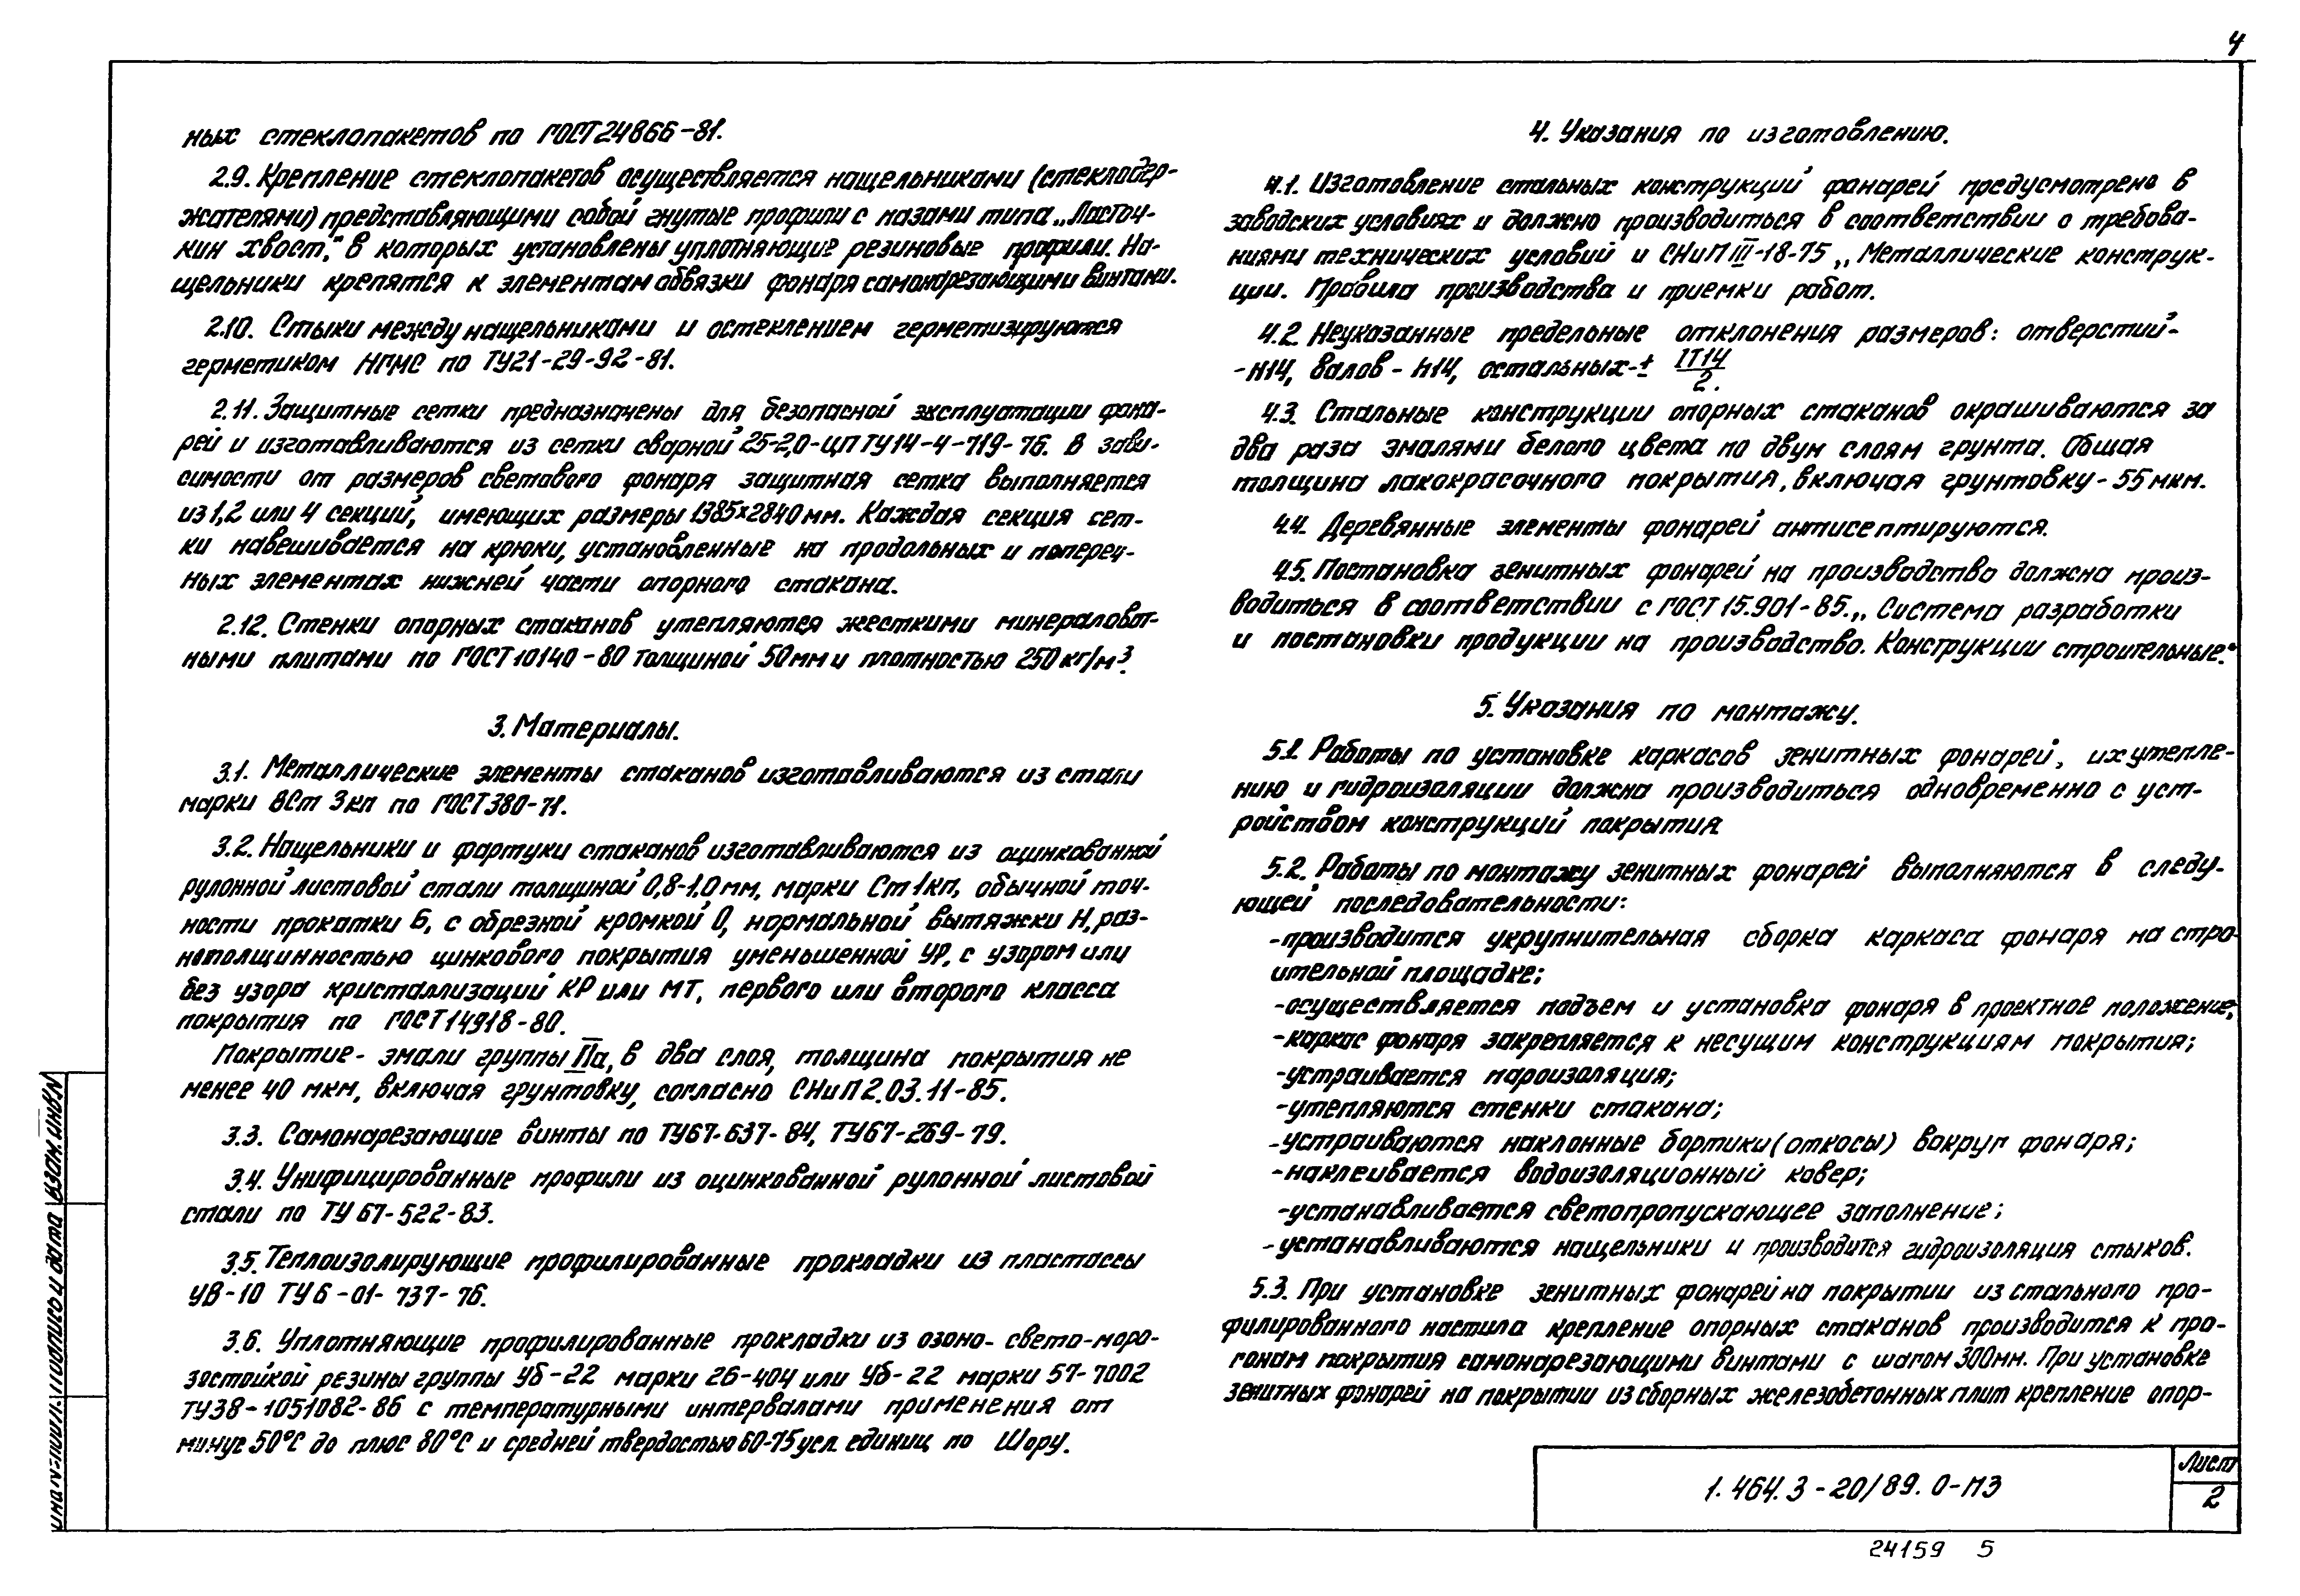 4
ных стеклопакетов по ГОСТ 24866-81.
2.9. Крепление стеклопакетов осуществляется нащельниками (стеклодер-
жателями) представляющими собой гнутые профили с пазами типа „Ласточ-
кин хвост," в которых установлены уплотняющие резиновые профили. На-
щельники крепятся к элементам обвязки фонаря самонарезающими винтами.
2.10. Стыки между нащельниками и остеклением герметизируются
герметиком НГМС по ТУ21-29-92-81.
2.11. Защитные сетки предназначены для безопасной эксплуатации фона-
рей и изготавливаются из сетки сварной 25-2,0-ЦП ТУ14-4-719-76. В зави-
симости от размеров светового фонаря защитная сетка выполняется
из 1,2 или 4 секций, имеющих размеры 1385×2840 мм. Каждая секция сет-
ки навешивается на крюки, установленные на продольных и попереч-
ных элементах нижней части опорного стакана.
2.12. Стенки опорных стаканов утепляются жесткими минераловат-
ными плитами по ГОСТ 10140-80 толщиной 50 мм и плотностью 250 кг/м³.
3. Материалы.
3.1. Металлические элементы стаканов изготавливаются из стали
марки ВСт 3кп по ГОСТ 380-71.
3.2. Нащельники и фартуки стаканов изготавливаются из оцинкованной
рулонной листовой стали толщиной 0,8-1,0 мм, марки Ст1кп, обычной точ-
ности прокатки Б, с обрезной кромкой О, нормальной вытяжки Н, раз-
нотолщинностью цинкового покрытия уменьшенной УР, с узором или
без узора кристаллизаций КР или МТ, первого или второго класса
покрытия по ГОСТ 14918-80.
Покрытие - эмали группы IIа, в два слоя, толщина покрытия не
менее 40 мкм, включая грунтовку, согласно СНиП 2.03.11-85.
3.3. Самонарезающие винты по ТУ67-637-84, ТУ67-269-79.
3.4. Унифицированные профили из оцинкованной рулонной листовой
стали по ТУ 67-522-83.
3.5. Теплоизолирующие профилированные прокладки из пластассы
УВ-10 ТУ6-01-737-76.
3.6. Уплотняющие профилированные прокладки из озоно-свето-моро-
зостойкой резины группы Уб-22 марки 26-404 или Уб-22 марки 57-7002
ТУ38-1051082-86 с температурными интервалами применения от
минус 50°С до плюс 80°С и средней твердостью 60-75 усл. единиц по Шору.
4. Указания по изготовлению.
4.1. Изготовление стальных конструкций фонарей предусмотрено в
заводских условиях и должно производиться в соответствии с требова-
ниями технических условий и СНиП III-18-75 „Металлические конструк-
ции. Правила производства и приемки работ.
4.2. Неуказанные предельные отклонения размеров: отверстий-
-Н14, валов - h14, остальных-± IT14/2.
4.3. Стальные конструкции опорных стаканов окрашиваются за
два раза эмалями белого цвета по двум слоям грунта. Общая
толщина лакокрасочного покрытия, включая грунтовку - 55 мкм.
4.4. Деревянные элементы фонарей антисептируются.
4.5. Постановка зенитных фонарей на производство должна произ-
водиться в соответствии с ГОСТ 15.901-85. „Система разработки
и постановки продукции на производство. Конструкции строительные."
5. Указания по монтажу.
5.1. Работы по установке каркасов зенитных фонарей, их утепле-
нию и гидроизоляции должна производиться одновременно с уст-
ройством конструкций покрытия
5.2. Работы по монтажу зенитных фонарей выполняются в следу-
ющей последовательности:
-производится укрупнительная сборка каркаса фонаря на стро-
ительной площадке;
-осуществляется подъем и установка фонаря в проектное положение;
-каркас фонаря закрепляется к несущим конструкциям покрытия;
-устраивается пароизоляция;
-утепляются стенки стакана;
-устраиваются наклонные бортики (откосы) вокруг фонаря;
-наклеивается водоизоляционный ковер;
-устанавливается светопропускающее заполнение;
-устанавливаются нащельники и производится гидроизоляция стыков.
5.3. При установке зенитных фонарей на покрытии из стального про-
филированного настила крепление опорных стаканов производится к про-
гонам покрытия самонарезающими винтами с шагом 300 мм. При установке
зенитных фонарей на покрытии из сборных железобетонных плит крепление опор-
1.464.3-20/89.0-ПЗ
Лист
2
24159 5
Инв.№ подл. Подпись и дата Взам.инв.№